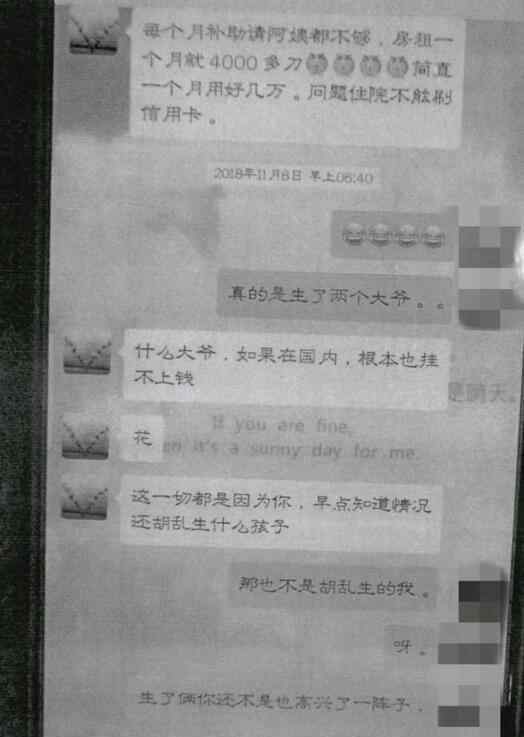 每个月补助请阿姨都不够，房租一
个月就4000多刀简直
一个月用好几万。问题住院不能刷
信用卡。
2018年11月8日 早上06:40
真的是生了两个大爷。。
什么大爷，如果在国内，根本也挂
不上钱
是晴天。
If you are fine,
花
en it's a sunny day for me.
这一切都是因为你，早点知道情况
还胡乱生什么孩子
那也不是胡乱生的我。
呀。
生了俩你还不是也高兴了一阵子，